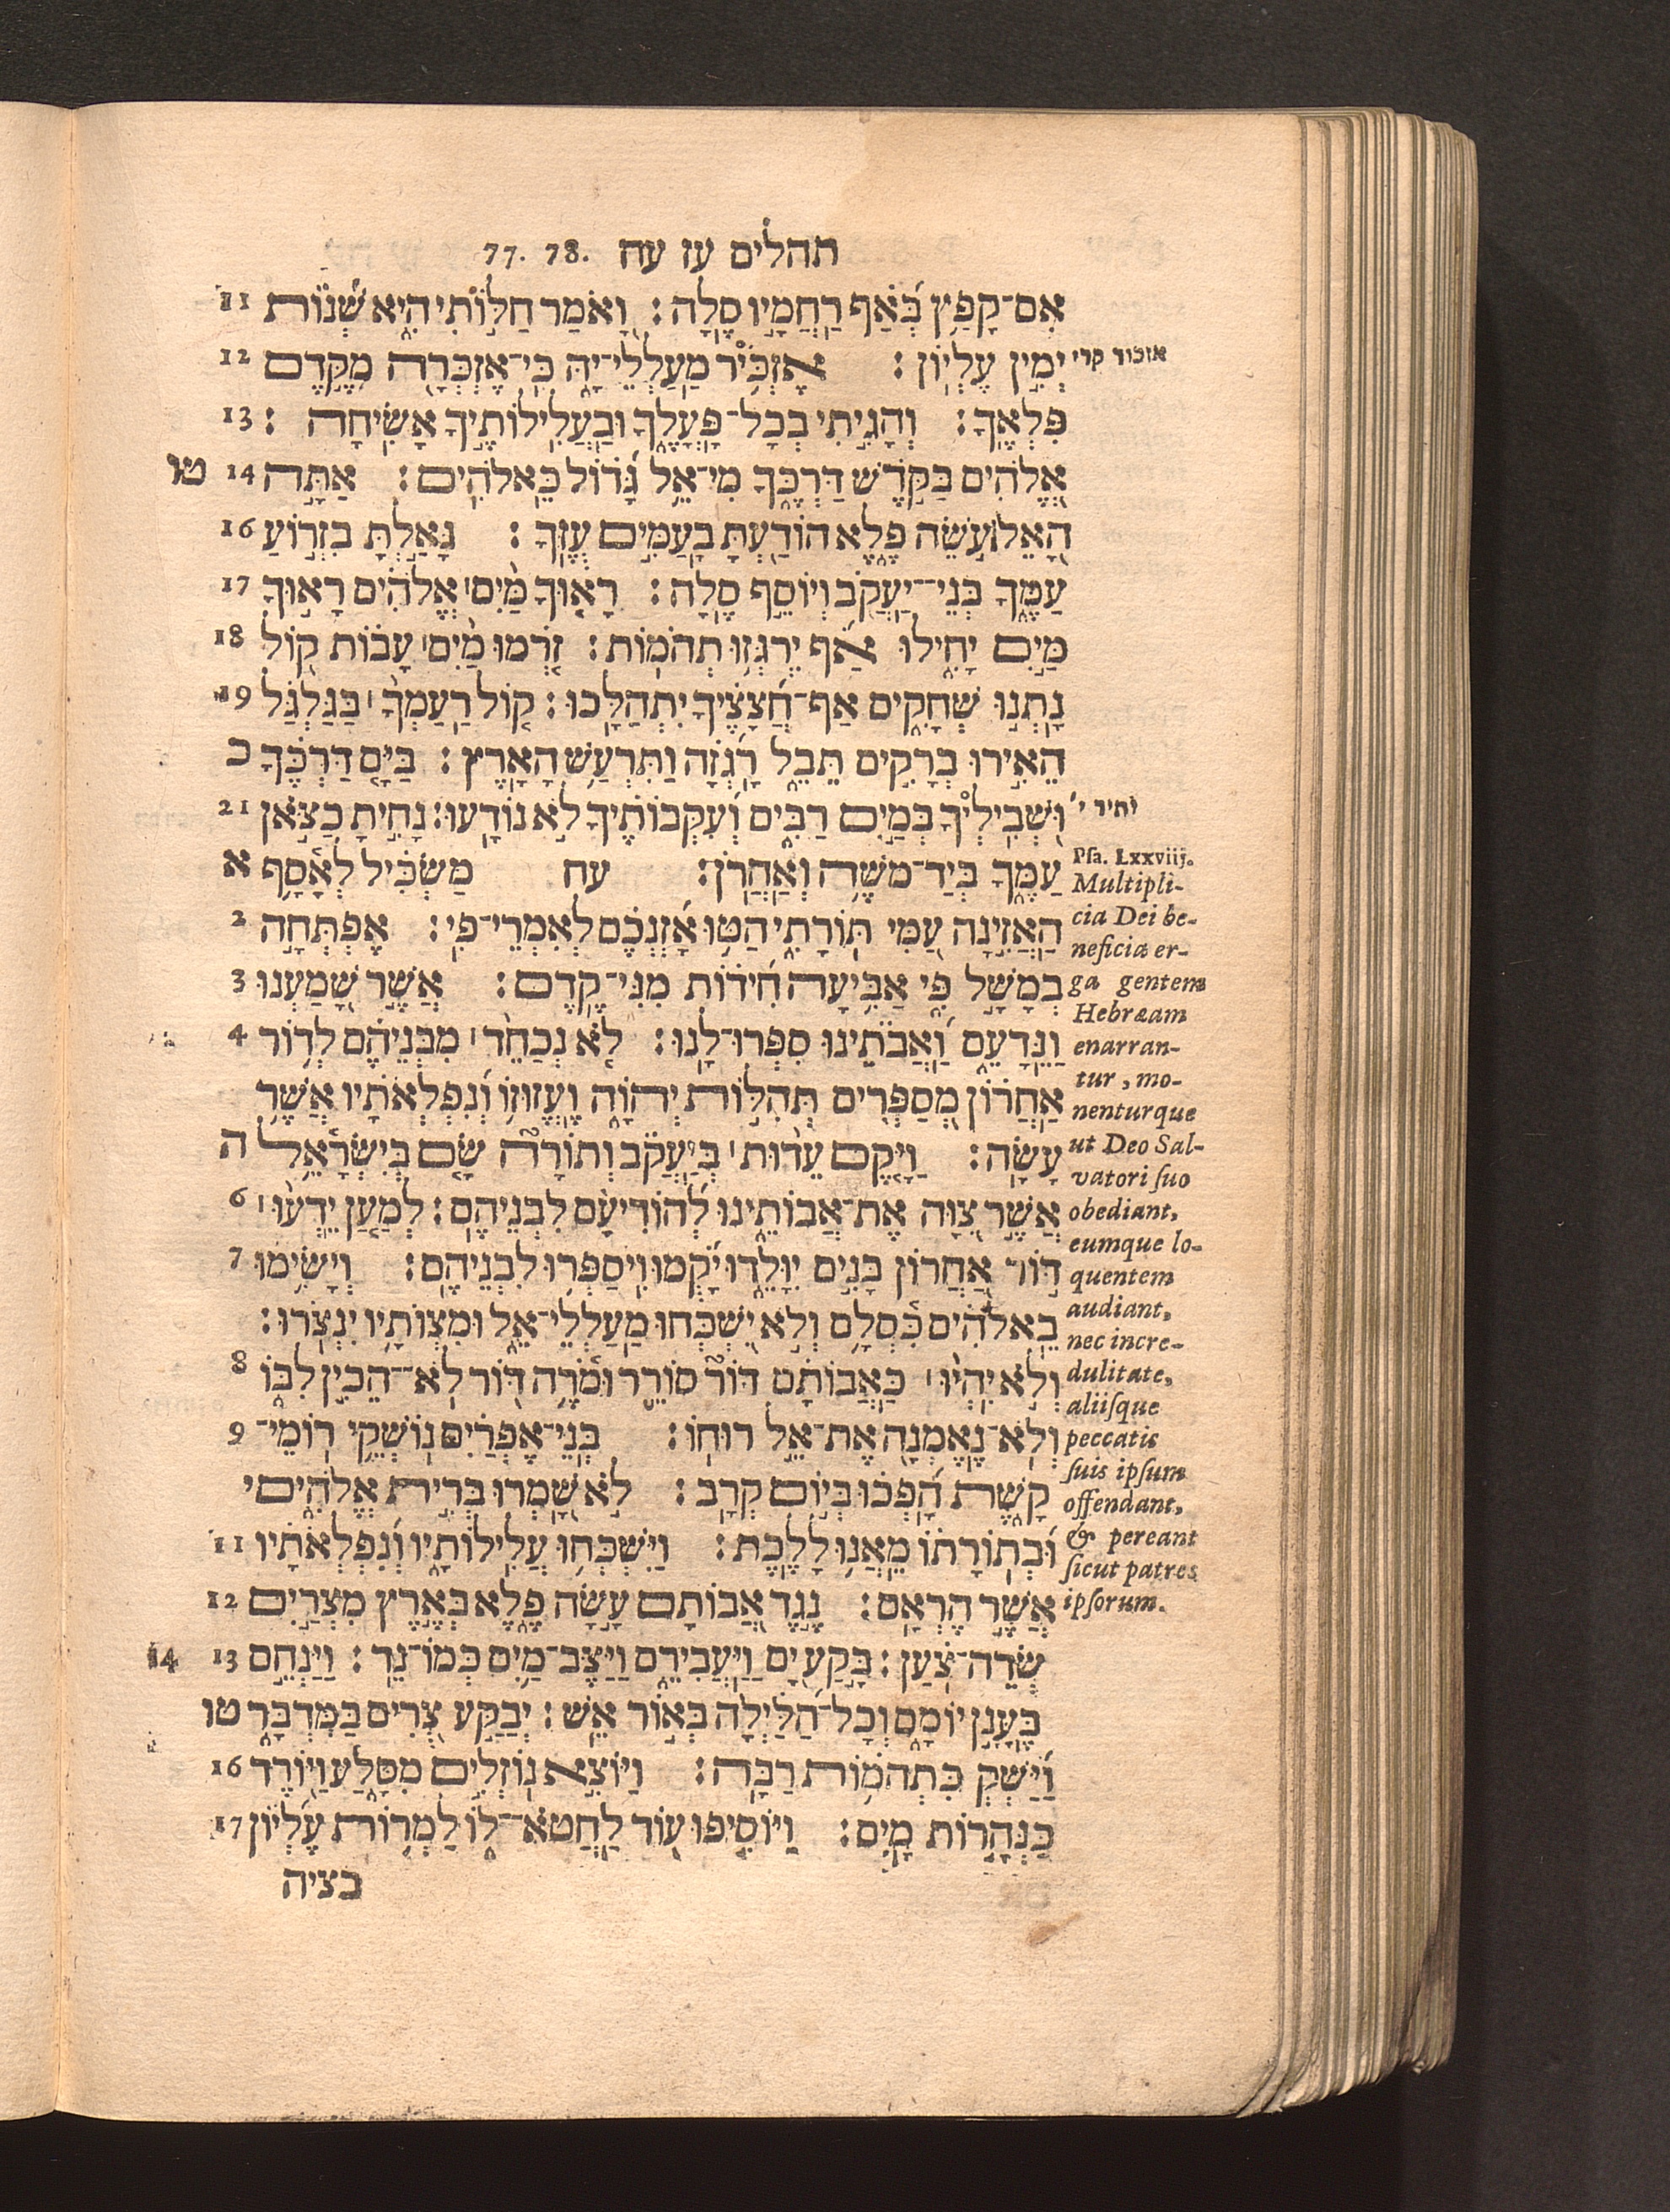 תהלים עז עח 77. 78.
אִם־קָפַץ בְּאַף רַחֲמָיו סֶלָה׃ וָאֹמַר חַלּוֹתִי הִיא שְׁנוֹת 11
יְמִין עֶלְיוֹן׃ אֶזְכִּיר מַעַלְלֵי־יָהּ כִּי־אֶזְכְּרָה מִקֶּדֶם 12
פִּלְאֶךָ׃ וְהָגִיתִי בְכָל־פָּעֳלֶךָ וּבַעֲלִילוֹתֶיךָ אָשִׂיחָה׃ 13
אֱלֹהִים בַּקֹּדֶשׁ דַּרְכֶּךָ מִי־אֵל גָּדוֹל כֵּאלֹהִים׃ אַתָּה 14 טו
הָאֵל עֹשֵׂה פֶלֶא הוֹדַעְתָּ בָעַמִּים עֻזֶּךָ׃ גָּאַלְתָּ בִּזְרוֹעַ 16
עַמֶּךָ בְּנֵי־יַעֲקֹב וְיוֹסֵף סֶלָה׃ רָאוּךָ מַּיִם׀ אֱלֹהִים רָאוּךָ 17
מַּיִם יָחִילוּ אַף יִרְגְּזוּ תְהֹמוֹת׃ זֹרְמוּ מַיִם׀ עָבוֹת קוֹל 18
נָתְנוּ שְׁחָקִים אַף־חֲצָצֶיךָ יִתְהַלָּכוּ׃ קוֹל רַעַמְךָ׀ בַּגַּלְגַּל 19
הֵאִירוּ בְרָקִים תֵּבֵל רָגְזָה וַתִּרְעַשׁ הָאָרֶץ׃ בַּיָּם דַּרְכֶּךָ כ
וּשְׁבִילְיךָ בְּמַיִם רַבִּים וְעִקְּבוֹתֶיךָ לֹא נוֹדָעוּ׃ נָחִיתָ כַצֹּאן 21
עַמֶּךָ בְּיַד־מֹשֶׁה וְאַהֲרֹן׃ עח מַשְׂכִּיל לְאָסָף א
הַאֲזִינָה עַמִּי תּוֹרָתִי הַטּוּ אָזְנְכֶם לְאִמְרֵי־פִי׃ אֶפְתְּחָה 2
בְמָשָׁל פִּי אַבִּיעָה חִידוֹת מִנִּי־קֶדֶם׃ אֲשֶׁר שָׁמַעְנוּ 3
וַנֵּדָעֵם וַאֲבֹתֵינוּ סִפְּרוּ־לָנוּ׃ לֹא נְכַחֵד׀ מִבְּנֵיהֶם לְדוֹר 4
אַחֲרוֹן מְסַפְּרִים תְּהִלּוֹת יְהוָה וֶעֱזוּזוֹ וְנִפְלְאֹתָיו אֲשֶׁר
עָשָׂה׃ וַיָּקֶם עֵדוּת׀ בְּיַעֲקֹב וְתוֹרָה שָׂם בְּיִשְׂרָאֵל ה
אֲשֶׁר צִוָּה אֶת־אֲבוֹתֵינוּ לְהוֹדִיעָם לִבְנֵיהֶם׃ לְמַעַן יֵדְעוּ׀ 6
דּוֹר אַחֲרוֹן בָּנִים יִוָּלֵדוּ יָקֻמוּ וִיסַפְּרוּ לִבְנֵיהֶם׃ וְיָשִׂימוּ 7
בֵאלֹהִים כִּסְלָם וְלֹא יִשְׁכְּחוּ מַעַלְלֵי־אֵל וּמִצְוֹתָיו יִנְצֹרוּ׃
וְלֹא יִהְיוּ׀ כַּאֲבוֹתָם דּוֹר סוֹרֵר וּמֹרֶה דּוֹר לֹא־הֵכִין לִבּוֹ 8
וְלֹא־נֶאֶמְנָה אֶת־אֵל רוּחוֹ׃ בְּנֵי־אֶפְרַיִם נוֹשְׁקֵי רוֹמֵי־ 9
קָשֶׁת הָפְכוּ בְּיוֹם קְרָב׃ לֹא שָׁמְרוּ בְּרִית אֱלֹהִים י
וּבְתוֹרָתוֹ מֵאֲנוּ לָלֶכֶת׃ וַיִּשְׁכְּחוּ עֲלִילוֹתָיו וְנִפְלְאֹתָיו 11
אֲשֶׁר הֶרְאָם׃ נֶגֶד אֲבוֹתָם עָשָׂה פֶלֶא בְּאֶרֶץ מִצְרַיִם 12
שְׂדֵה־צֹעַן׃ בָּקַע יָם וַיַּעֲבִירֵם וַיַּצֶּב־מַיִם כְּמוֹ־נֵד׃ וַיַּנְחֵם 13 14
בֶּעָנָן יוֹמָם וְכָל־הַלַּיְלָה בְּאוֹר אֵשׁ׃ יְבַקַּע צֻרִים בַּמִּדְבָּר טו
וַיַּשְׁקְ כִּתְהֹמוֹת רַבָּה׃ וַיּוֹצִא נוֹזְלִים מִסָּלַע וַיּוֹרֶד 16
כַּנְּהָרוֹת מָיִם׃ וַיּוֹסִיפוּ עוֹד לַחֲטֹא־לוֹ לַמְרוֹת עֶלְיוֹן 17
בציה
אזכור קרי
Psa. Lxxviij.
Multipli-
cia Dei be-
neficia er-
ga gentem
Hebræam
enarran-
tur, mo-
nenturque
ut Deo Sal-
vatori suo
obediant,
eumque lo-
quentem
audiant,
nec incre-
dulitate,
aliisque
peccatis
suis ipsum
offendant,
& pereant
sicut patres
ipsorum.